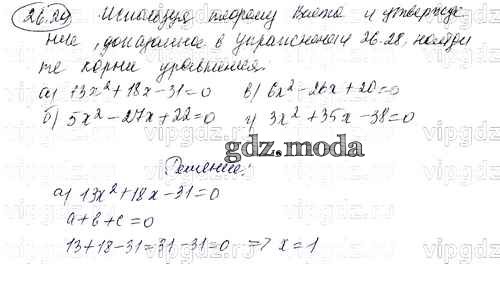 26.29 Используя теорему Виета и утвержде
ние, доказанное в упражнении 26.28, найди
те корни уравнения.
а) 13x²+18x-31=0 в) 6x²-26x+20=0
б) 5x²-27x+22=0 г) 3x²+35x-38=0
gdz.moda
Решение:
а) 13x²+18x-31=0
a+b+c=0
13+18-31=31-31=0 => x=1